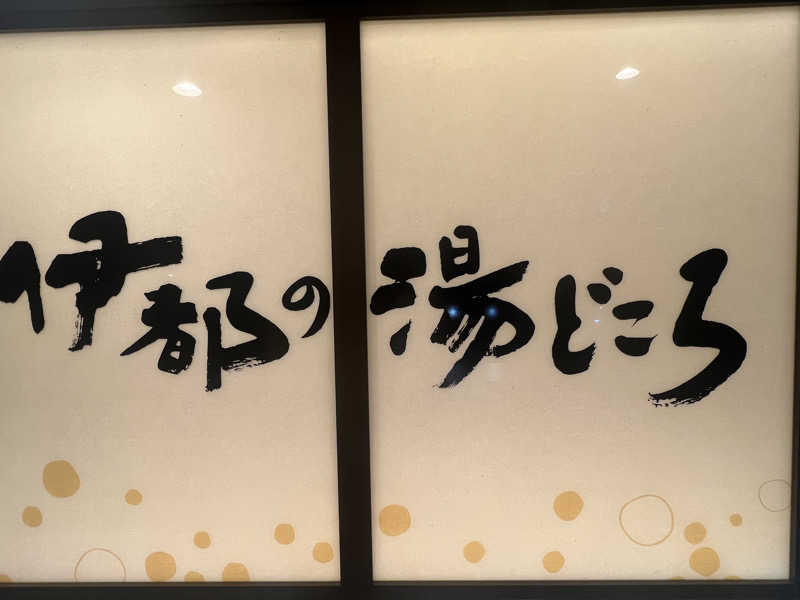 伊都の湯どころ